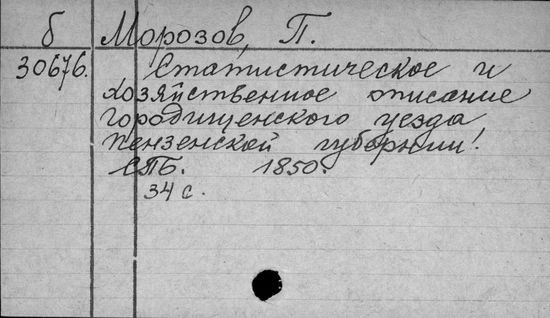 б Морозов, П.
30676. Статистическое и
хозяйственное описание
Городищенского уезда
Пензенской губернии.
СПБ. 1850.
34 с.